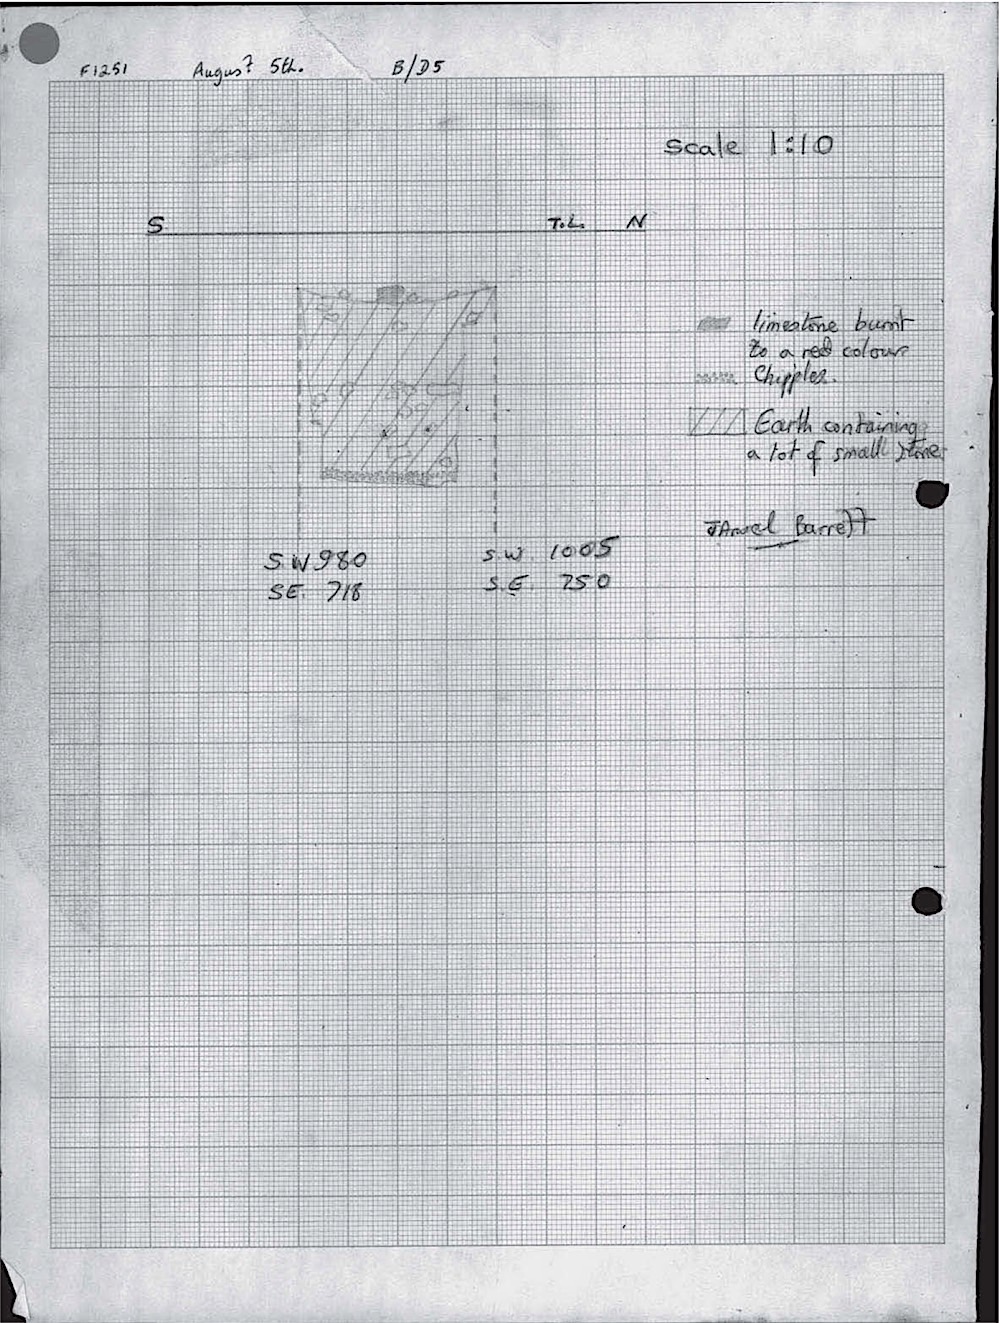 F1251 August 5th. B/D5
Scale 1:10
S T.L. N
limestone burnt
to a red colour
Chipples.
Earth containing
a lot of small stone
Barrett
S.W 980 S.W. 1005
SE. 718 S.E. 750